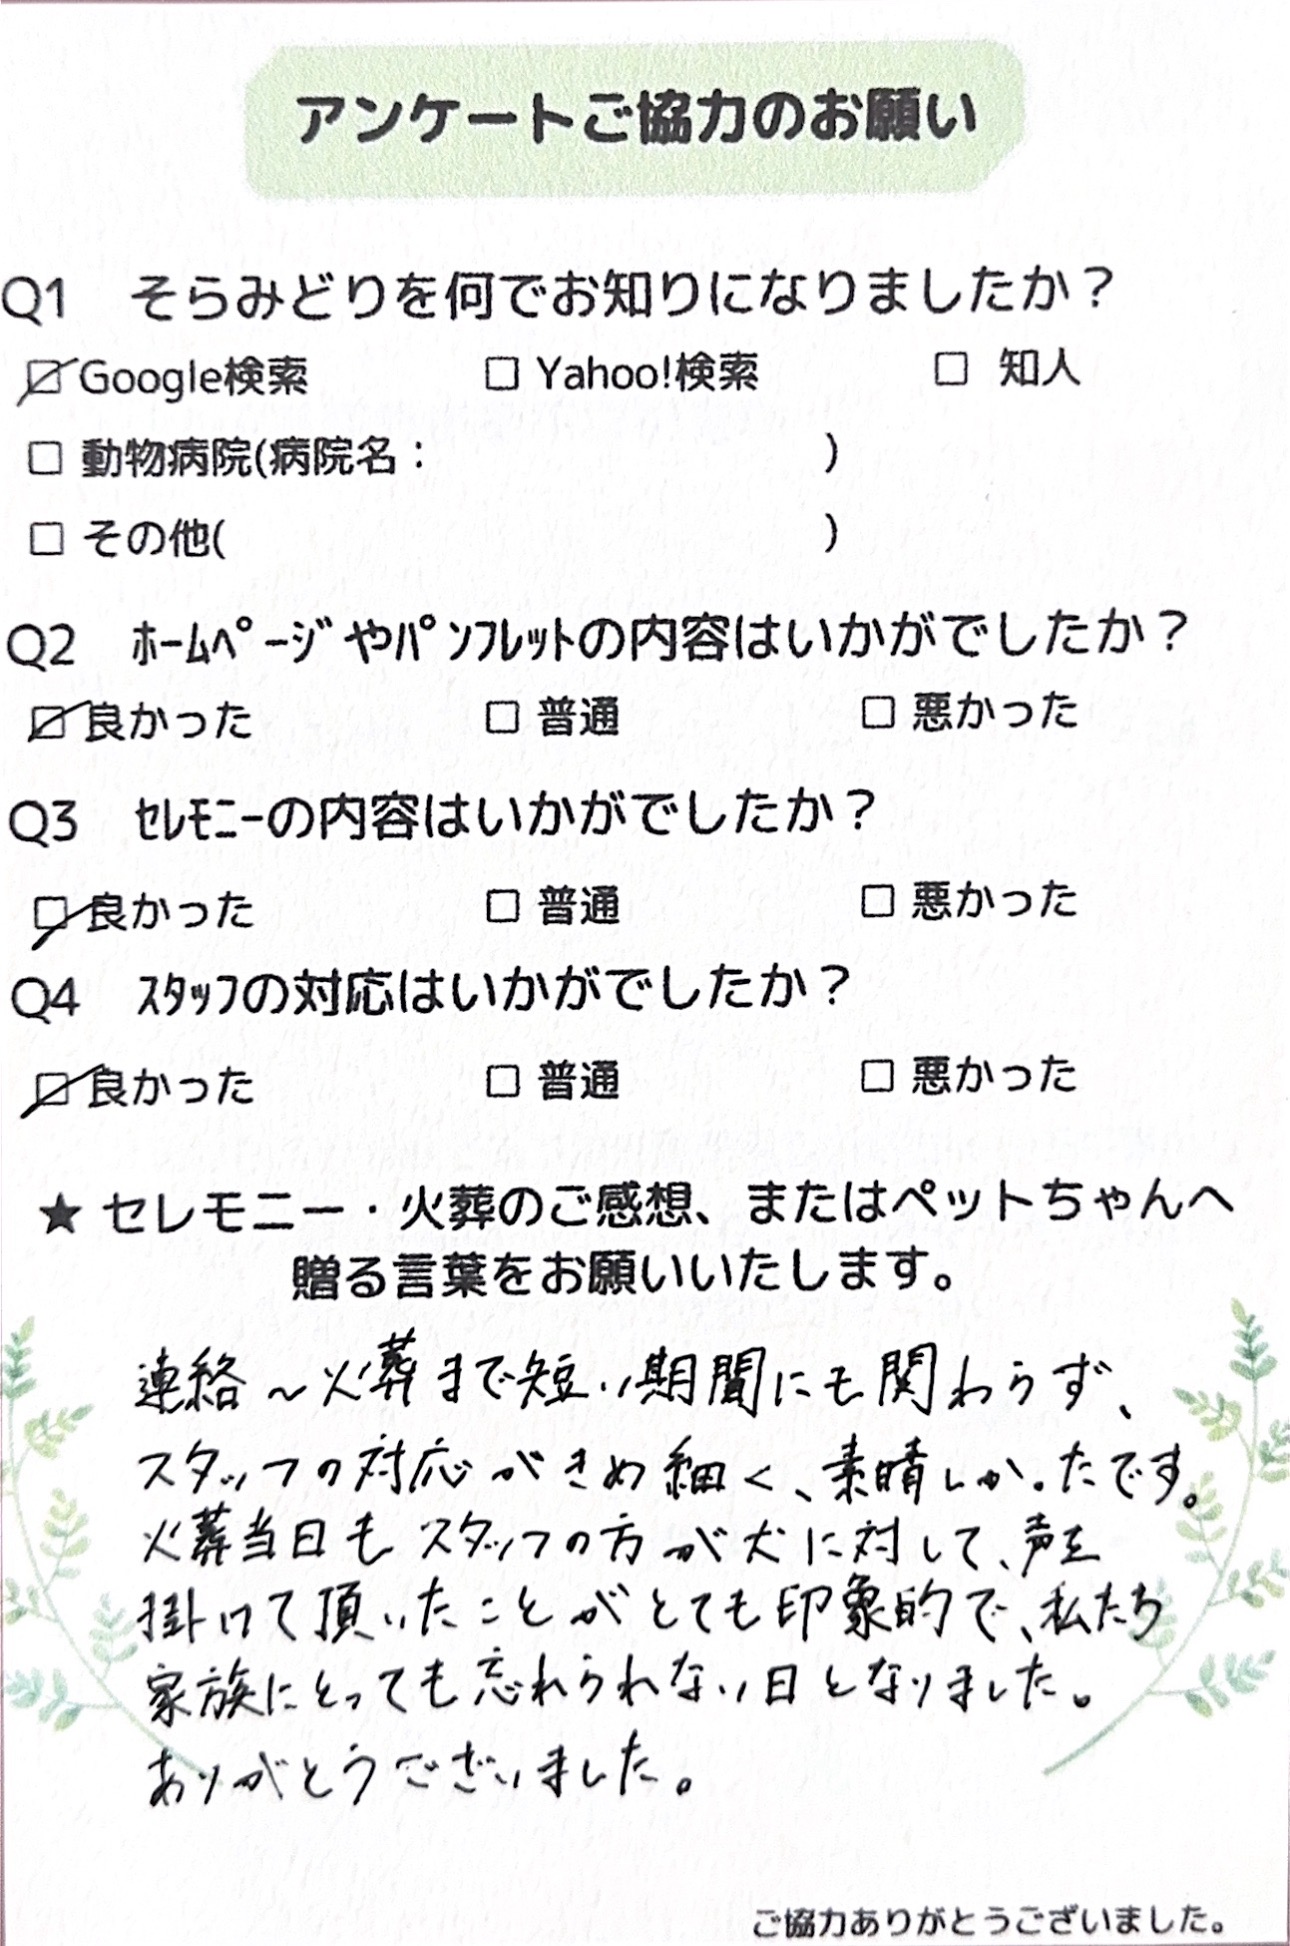 アンケートご協力のお願い
Q1 そらみどりを何でお知りになりましたか？
☑ Google検索 □ Yahoo!検索 □ 知人
□ 動物病院(病院名： )
□ その他( )
Q2 ﾎｰﾑﾍﾟｰｼﾞやﾊﾟﾝﾌﾚｯﾄの内容はいかがでしたか？
☑ 良かった □ 普通 □ 悪かった
Q3 ｾﾚﾓﾆｰの内容はいかがでしたか？
☑ 良かった □ 普通 □ 悪かった
Q4 ｽﾀｯﾌの対応はいかがでしたか？
☑ 良かった □ 普通 □ 悪かった
★ セレモニー・火葬のご感想、またはペットちゃんへ
贈る言葉をお願いいたします。
連絡～火葬まで短い期間にも関わらず、
スタッフの対応がきめ細く、素晴しかったです。
火葬当日もスタッフの方が犬に対して、声を
掛けて頂いたことがとても印象的で、私たち
家族にとっても忘れられない日となりました。
ありがとうございました。
ご協力ありがとうございました。